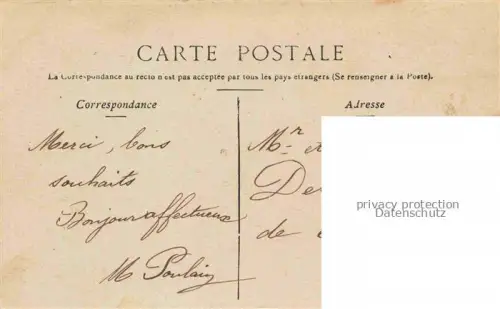 CARTE POSTALE
La Correspondance au recto n'est pas acceptée par tous les pays étrangers (Se renseigner à la Poste).
Correspondance
Adresse
Merci, bons
souhaits
Bonjour affectueux
M Poulain
Mr
De
de
privacy protection
Datenschutz